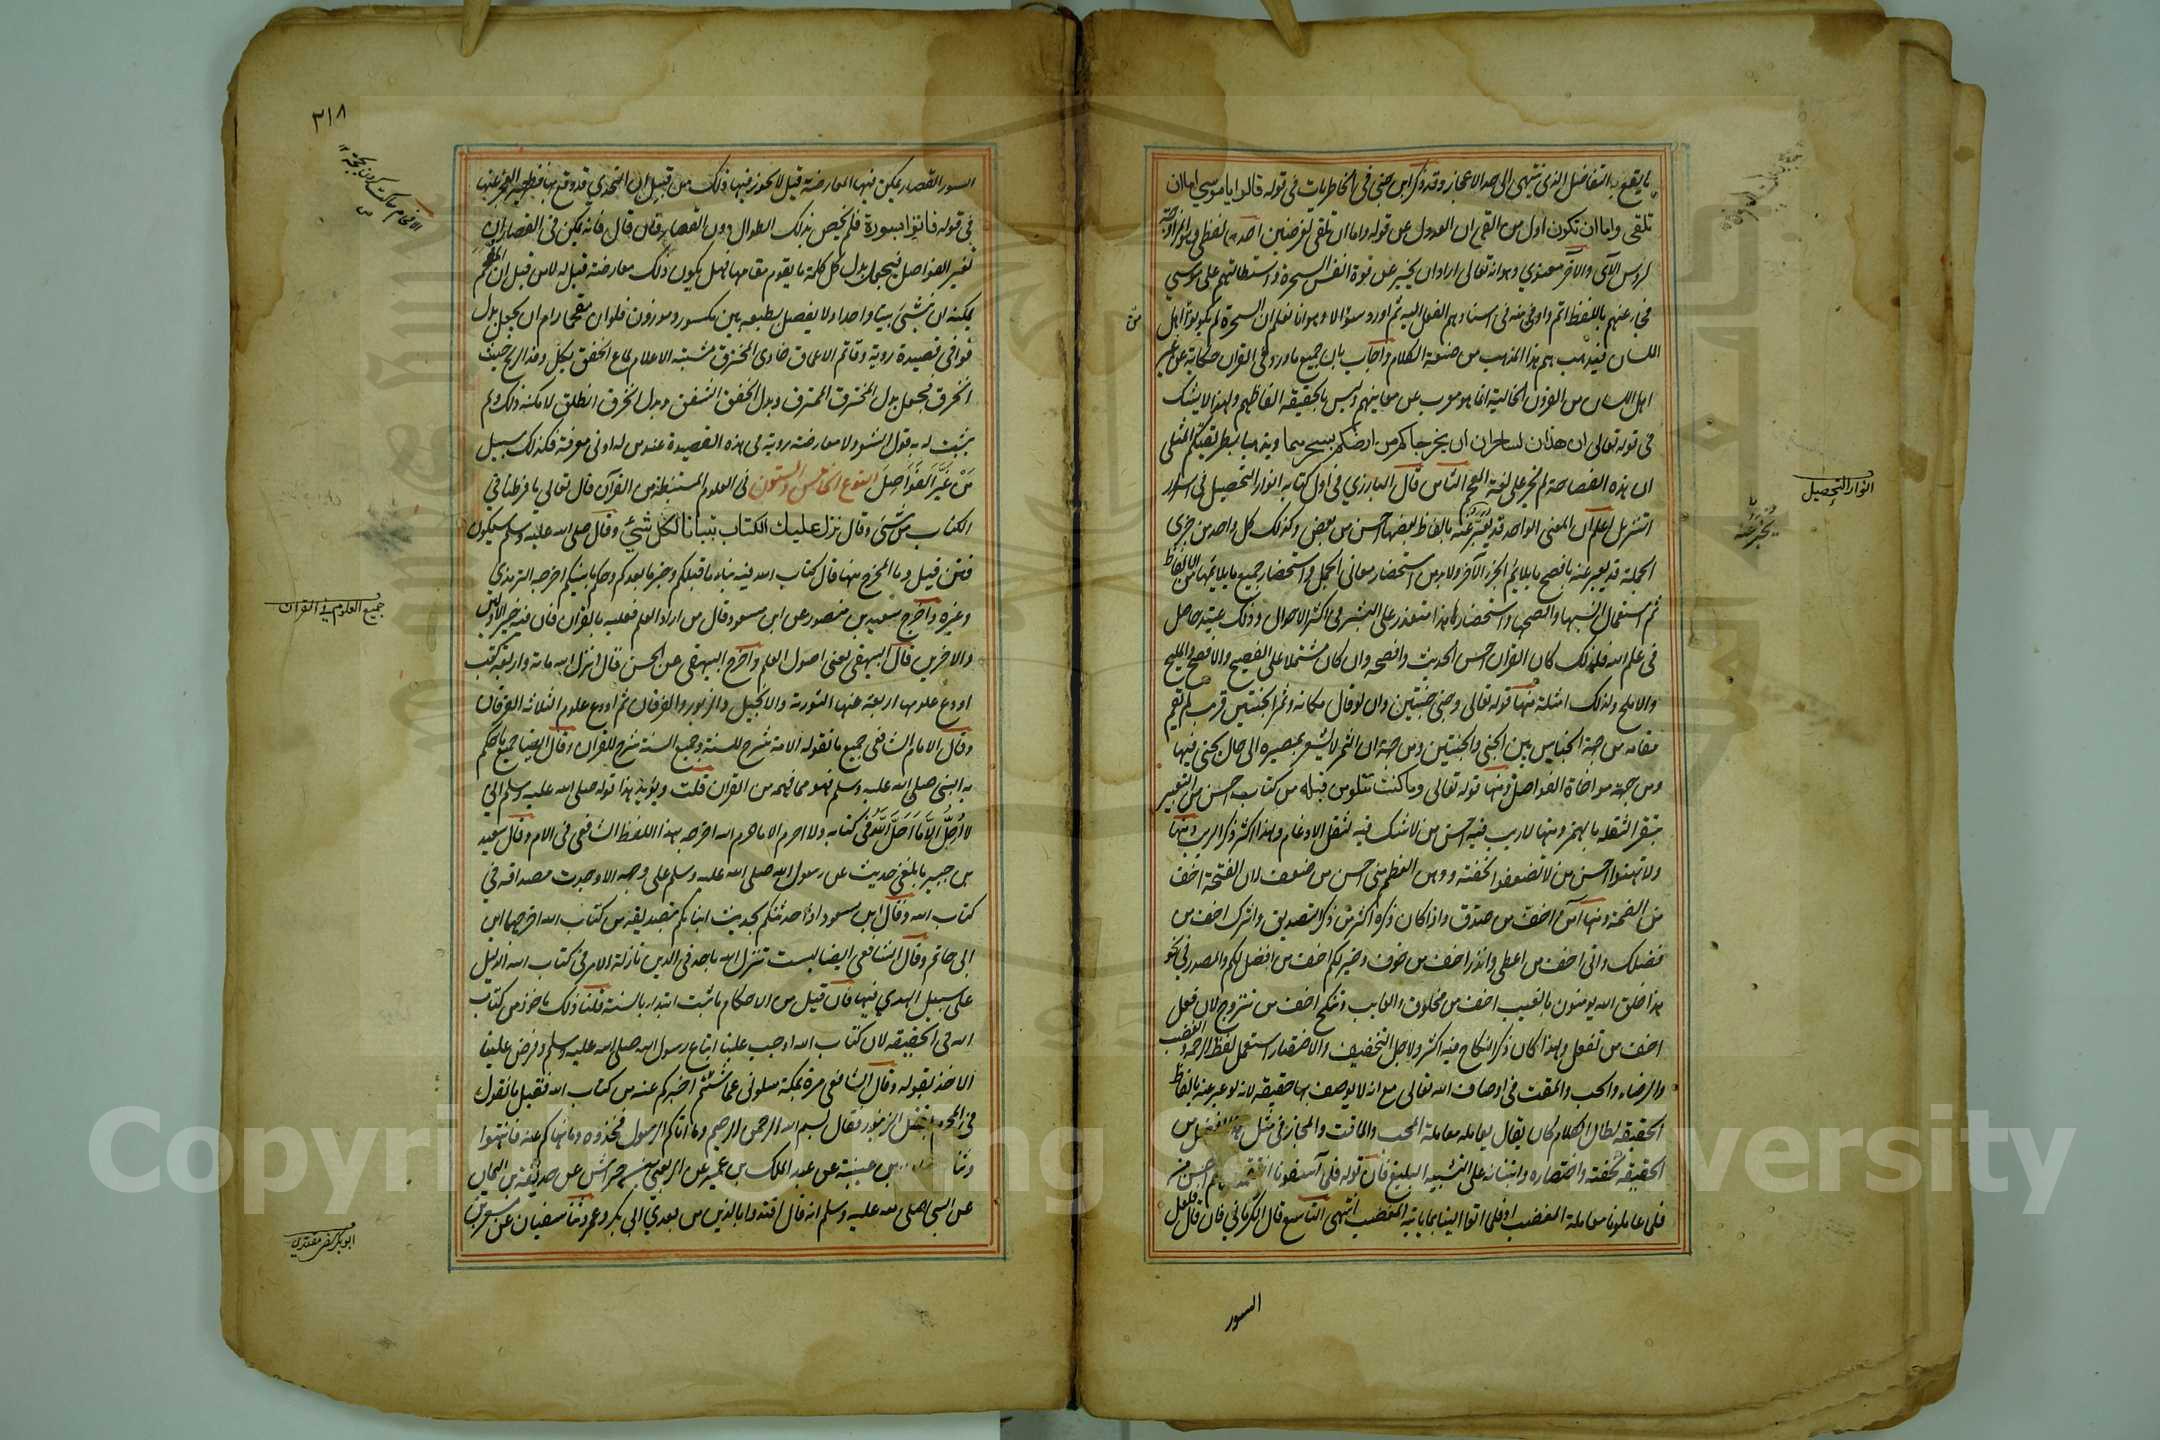 ما يقع به التفاضل الذي ينتهي الى حد الاعجاز وقد ذكر ابن جني في الخاطريات في قوله قالوا يا موسى اما ان
تلقي واما ان نكون اول من القى ان العدول عن قوله واما ان نلقي لغرضين احدهما لفظي وهو المزاوجة
لرؤس الآي والآخر معنوي وهو انه تعالى اراد ان يخبر عن قوة انفس السحرة واستطالتهم على موسى
فجاء عنهم باللفظ اتم واوفى منه في اسنادهم الفعل اليه ثم اورد سؤالا وهو انا نعلم ان السحرة لم يكونوا اهل
اللسان فيذهب بهم هذا المذهب من صنعة الكلام واجاب بان جميع ما ورد في القران حكاية عن غير
اهل اللسان من القرون الخالية انما هو معرب عن معانيهم وليس بالحقيقة الفاظهم ولهذا لا يشك
في قوله تعالى ان هذان لساحران ان يخرجاكم من ارضكم بسحرهما ويذهبا بطريقتكم المثلى
ان هذه الفصاحة لم تجر على لغة العجم الثامن قال البارزي في اول كتابه انوار التحصيل في اسرار
التنزيل اعلم ان المعنى الواحد قد يعبر عنه بالفاظ بعضها احسن من بعض وكذلك كل واحد من جزئي
الجملة قد يعبر عنه بافصح ما يلائم الجزء الآخر ولا بد من استحضار معاني الجمل واستحضار جميع ما يلائمها من الالفاظ
ثم استعمال انسبها وافصحها واستحضار هذا متعذر على البشر في اكثر الاحوال وذلك عتيد حاصل
في علم الله فلذلك كان القران احسن الحديث وافصحه وان كان مشتملا على الفصيح والافصح والمليح
والاملح ولذلك امثلة منها قوله تعالى وجنى الجنتين دان لو قال مكانه وثمر الجنتين قريب لم يقم
مقامه من جهة الجناس بين الجنى والجنتين ومن جهة ان الثمر لا يشعر بمصيره الى حال يجنى فيها
ومن جهة مواخاة الفواصل ومنها قوله تعالى وما كنت تتلو من قبله من كتاب احسن من التعبير
بتقرأ لثقله بالهمز ومنها لا ريب فيه احسن من لا شك فيه لثقل الادغام ولهذا كثر ذكر الريب ومنها
ولا تهنوا احسن من لا تضعفوا لخفته ووهن العظم مني احسن من ضعف لان الفتحة اخف
من الضمة ومنها آمن اخف من صدق ولذا كان ذكره اكثر من ذكر التصديق وآثرك اخف من
فضلك وآتى اخف من اعطى وانذر اخف من خوف وخير لكم اخف من افضل لكم والمصدر في نحو
هذا خلق الله يؤمنون بالغيب اخف من مخلوق والغايب وتنكح اخف من تتزوج لان فعل
اخف من تفعل ولهذا كان ذكر النكاح فيه اكثر ولاجل التخفيف والاختصار استعمل لفظ الرحمة والغضب
والرضاء والحب والمقت في اوصاف الله تعالى مع انه لا يوصف بها حقيقة لانه لو عبر عنه بالفاظ
الحقيقة لطال الكلام كان يقال يعامله معاملة المحب والماقت والمجاز في مثل هذا افضل من
الحقيقة لخفته واختصاره وابتنائه على التشبيه البليغ فان قوله فلما آسفونا انتقمنا منهم احسن من
فلما عاملونا معاملة المغضب او فلما اتوا الينا بما ياتيه المغضب انتهى التاسع قال الرماني فان قال قائل فلعل
السور
من
انوار التحصيل
٣١٨
السور القصار يمكن فيها المعارضة قيل لا يجوز فيها ذلك من قبل ان التحدي قد وقع بها فظهر العجز عنها
في قوله فاتوا بسورة فلم يخص بذلك الطوال دون القصار فان قال فانه يمكن في القصار ان
تغير الفواصل فيجعل بدل كل كلمة ما يقوم مقامها فهل يكون ذلك معارضة قيل له لا من قبل ان المفحم
يمكنه ان ينشئ بيتا واحدا ولا يفصل بطبعه بين مكسور وموزون فلو ان مفحما رام ان يجعل بدل
قوافي قصيدة روبة وقاتم الاعماق خاوي المخترق مشتبه الاعلام لماع الخفق بكل وفد الريح حيث
انخرق فجعل بدل المخترق الممزق وبدل الخفق الشفق وبدل انخرق انطلق لامكنه ذلك ولم
يثبت له به قول الشعر ولا معارضة روبة في هذه القصيدة عند من له ادنى معرفة فكذلك سبيل
من غير الفواصل النوع الخامس والستون في العلوم المستنبطة من القرآن قال تعالى ما فرطنا في
الكتاب من شئ وقال نزل عليك الكتاب تبيانا لكل شئ وقال صلى الله عليه وسلم سيكون
فتن قيل وما المخرج منها قال كتاب الله فيه نباء ما قبلكم وخبر ما بعدكم وحكم ما بينكم اخرجه الترمذي
وغيره واخرج سعيد بن منصور عن ابن مسعود قال من اراد العلم فعليه بالقرآن فان فيه خبر الاولين
والاخرين قال البيهقي يعني اصول العلم واخرج البيهقي عن الحسن قال انزل الله مائة واربعة كتب
اودع علومها اربعة منها التورية والانجيل والزبور والفرقان ثم اودع علوم الثلاثة الفرقان
وقال الامام الشافعي جميع ما تقوله الامة شرح للسنة وجميع السنة شرح للقران وقال ايضا جميع ما حكم
به النبي صلى الله عليه وسلم فهو مما فهمه من القرآن قلت ويؤيد هذا قوله صلى الله عليه وسلم اني
لا احل الا ما احل الله في كتابه ولا احرم الا ما حرم الله اخرجه بهذا اللفظ الشافعي في الام وقال سعيد
بن جبير ما بلغني حديث عن رسول الله صلى الله عليه وسلم على وجهه الا وجدت مصداقه في
كتاب الله وقال ابن مسعود اذا حدثتكم بحديث انبأتكم بتصديقه من كتاب الله اخرجهما ابن
ابي حاتم وقال الشافعي ايضا ليست تنزل الله باحد في الدين نازلة الا في كتاب الله الدليل
على سبيل الهدي فيها فان قيل من الاحكام ما ثبت ابتداء بالسنة قلنا ذلك ماخوذ من كتاب
الله في الحقيقة لان كتاب الله اوجب علينا اتباع رسول الله صلى الله عليه وسلم وفرض علينا
الاخذ بقوله وقال الشافعي مرة بمكة سلوني عما شئتم اخبركم عنه من كتاب الله فقيل ما تقول
في المحرم يقتل الزنبور فقال بسم الله الرحمن الرحيم وما اتاكم الرسول فخذوه وما نهاكم عنه فانتهوا
وثنا بن عيينة عن عبد الملك بن عمير عن ربعي بن حراش عن حذيفة بن اليمان
عن النبي صلى الله عليه وسلم انه قال اقتدوا بالذين من بعدي ابي بكر وعمر وثنا سفيان عن مسعر بن
جميع العلوم في القران
Copyright © King Saud University